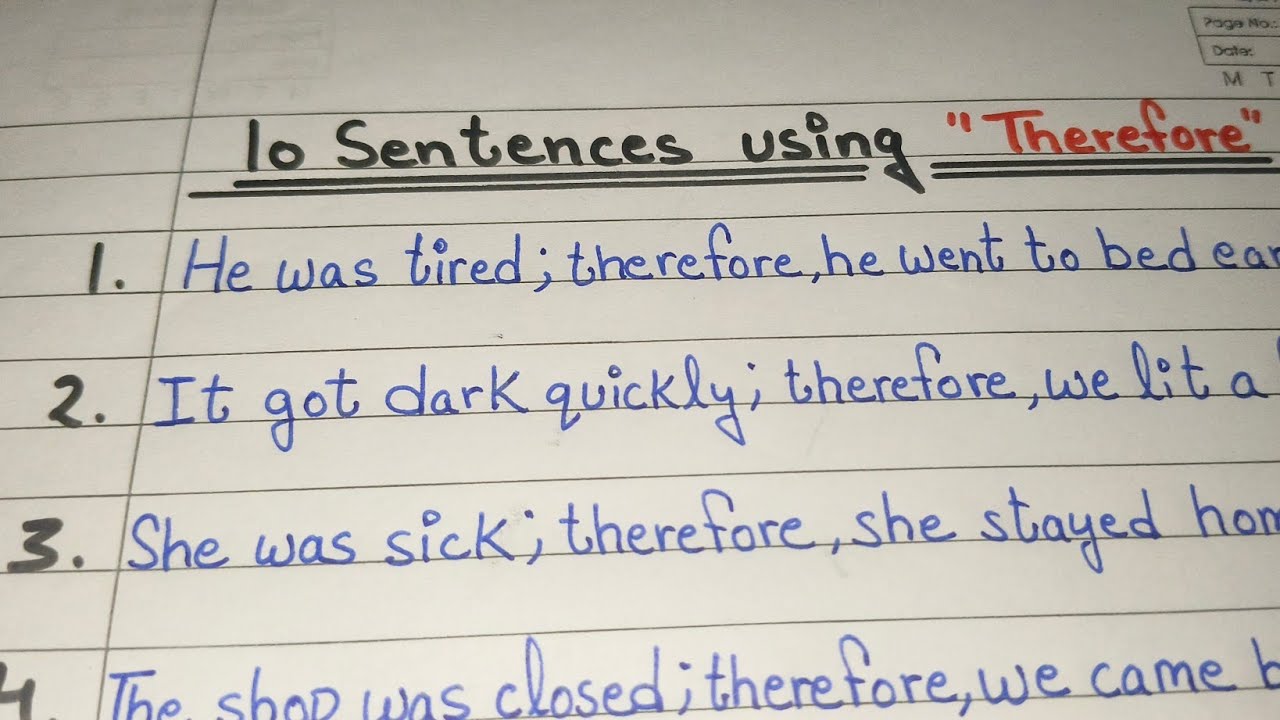 Page No.:
Date:
M T
10 Sentences using "Therefore"
1. He was tired; therefore, he went to bed ear
2. It got dark quickly; therefore, we lit a
3. She was sick; therefore, she stayed hom
4. The shop was closed; therefore, we came b